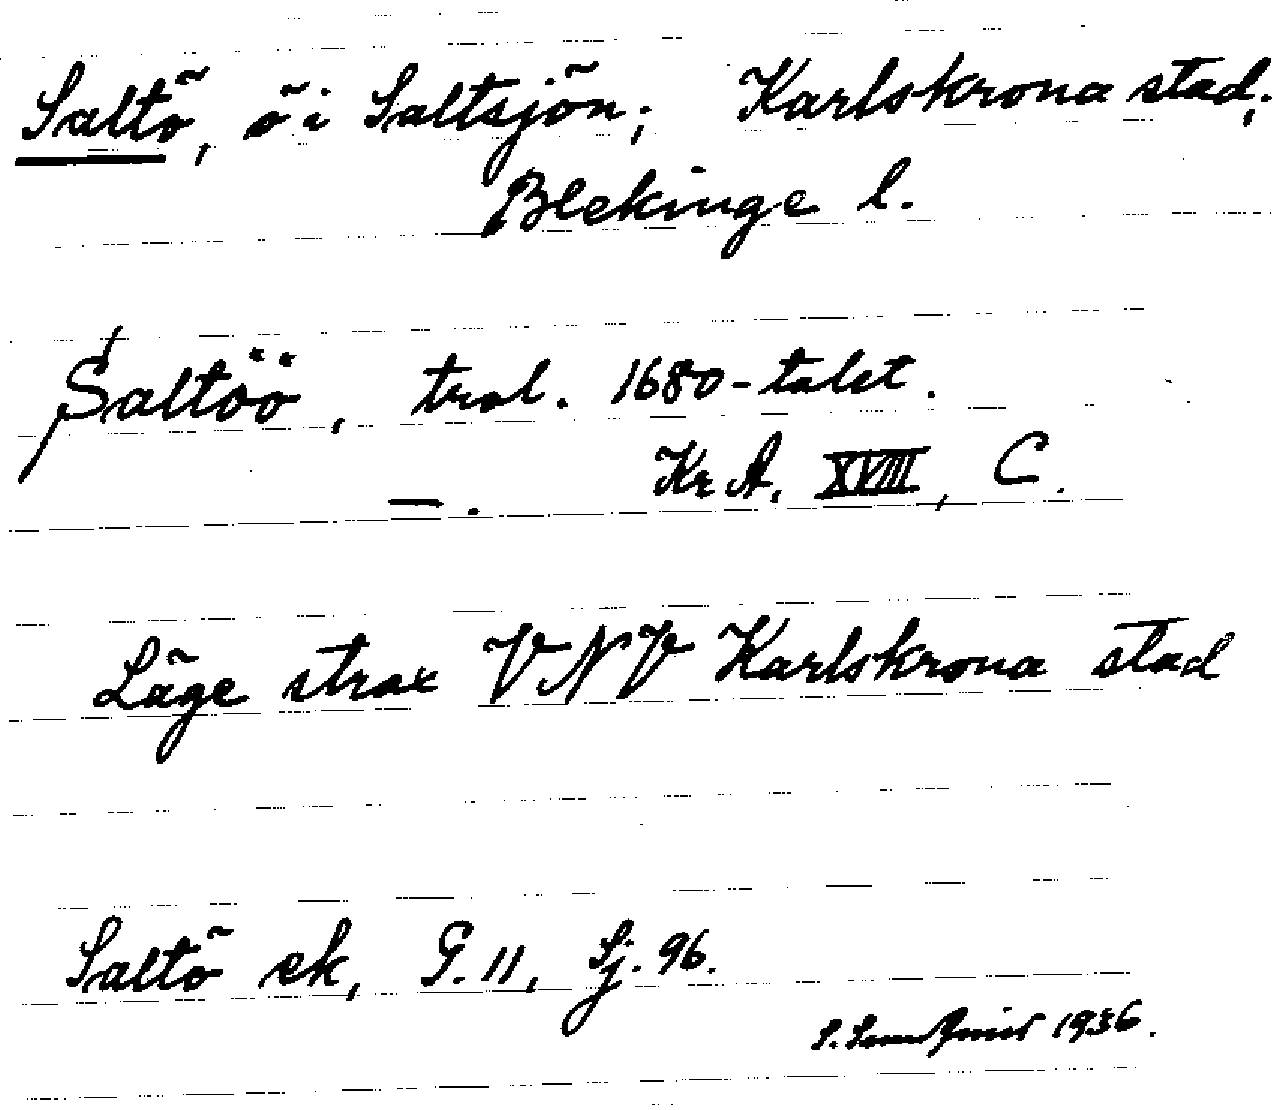 Saltö, ö i Saltsjön; Karlskrona stad,
Blekinge l.
Saltöö, trol. 1680-talet.
—. Kr A. XVIII, C.
Läge strax VNV Karlskrona stad
Saltö ek, G. 11, Sj. 96.
1936.